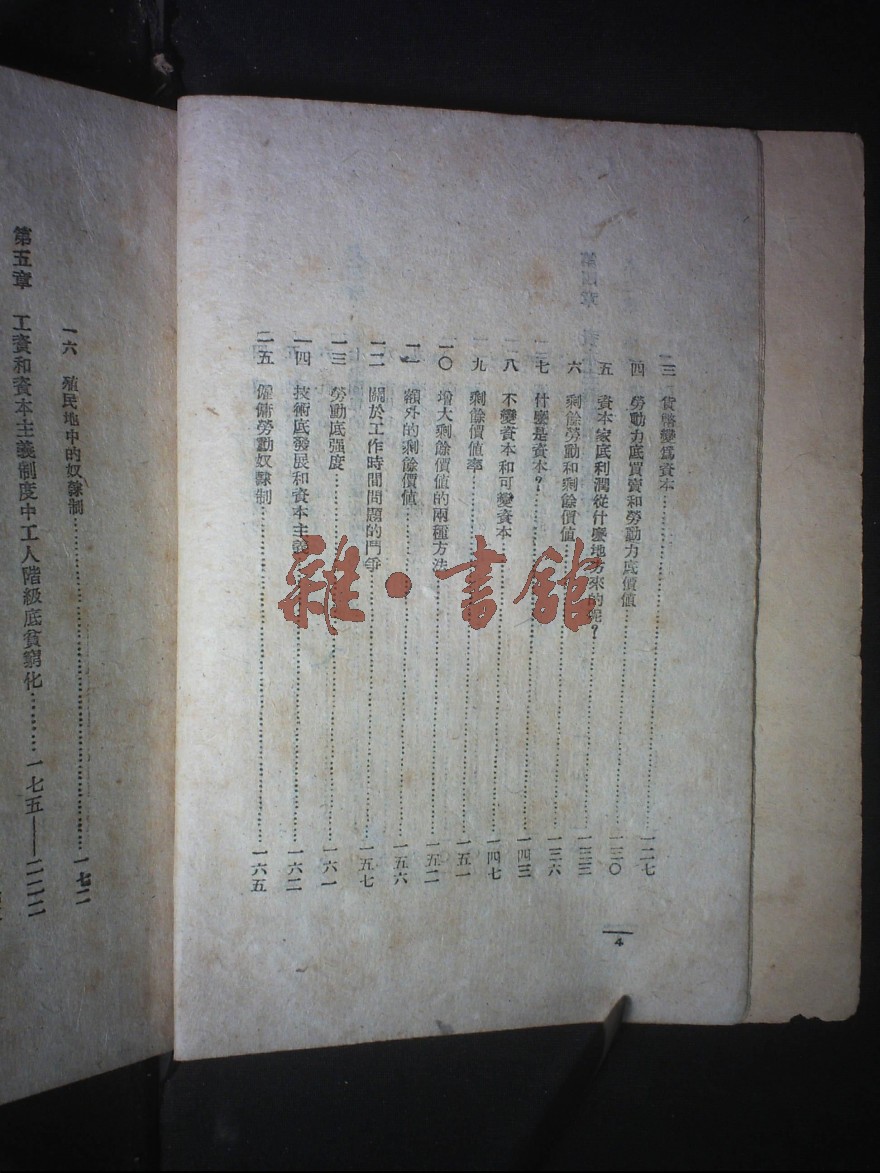 三 貨幣變爲資本……一二七
四 勞動力底買賣和勞動力底價値……一三〇
五 資本家底利潤從什麼地方來的呢？……一三三
六 剩餘勞動和剩餘價値……一三六
七 什麼是資本？……一四三
八 不變資本和可變資本……一四七
九 剩餘價値率……一五一
一〇 增大剩餘價値的兩種方法……一五二
一一 額外的剩餘價値……一五六
一二 關於工作時間問題的鬥爭……一五七
一三 勞動底强度……一六一
一四 技術底發展和資本主義……一六二
一五 僱傭勞動奴隸制……一六五
4
一六 殖民地中的奴隸制……一七二
第五章 工資和資本主義制度中工人階級底貧窮化……一七五——二二二
雜·書館